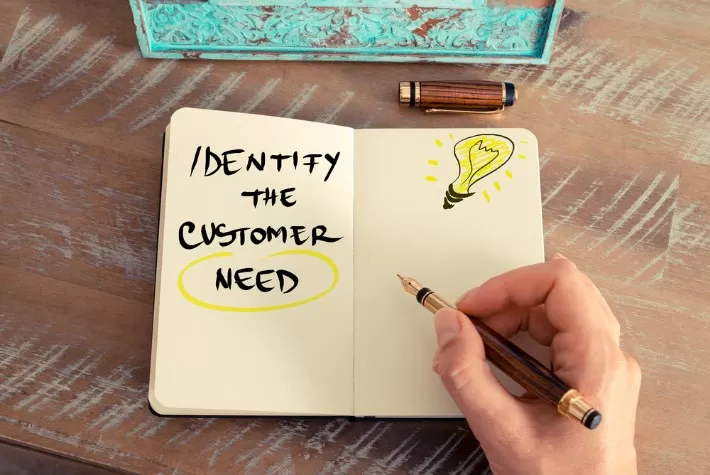 IDENTIFY
THE
CUSTOMER
NEED